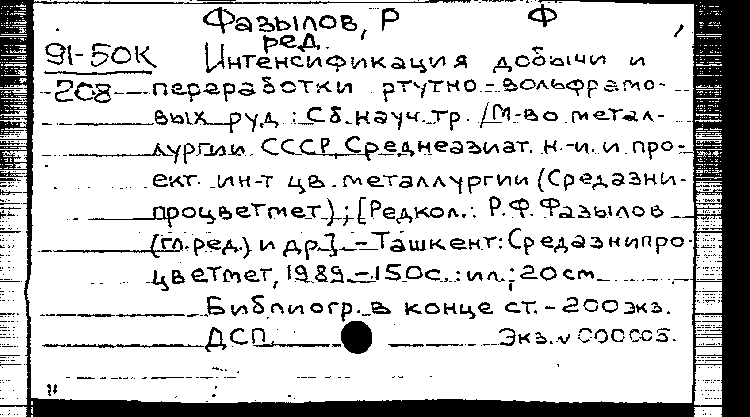 Фазылов, Р Ф
ред.
91-50К Интенсификация добычи и
208 переработки ртутно-вольфрамо-
вых руд : Сб. науч. тр. /М-во метал-
лургии СССР, Среднеазиат. н.-и. и про-
ект. ин-т цв. металлургии (Средазни-
процветмет) ; [Редкол.: Р.Ф. Фазылов
(гл. ред.) и др.]. - Ташкент: Средазнипро-
цветмет, 1989. - 150с. : ил.; 20см
Библиогр. в конце ст. - 200 экз.
ДСП Экз. N 000005.